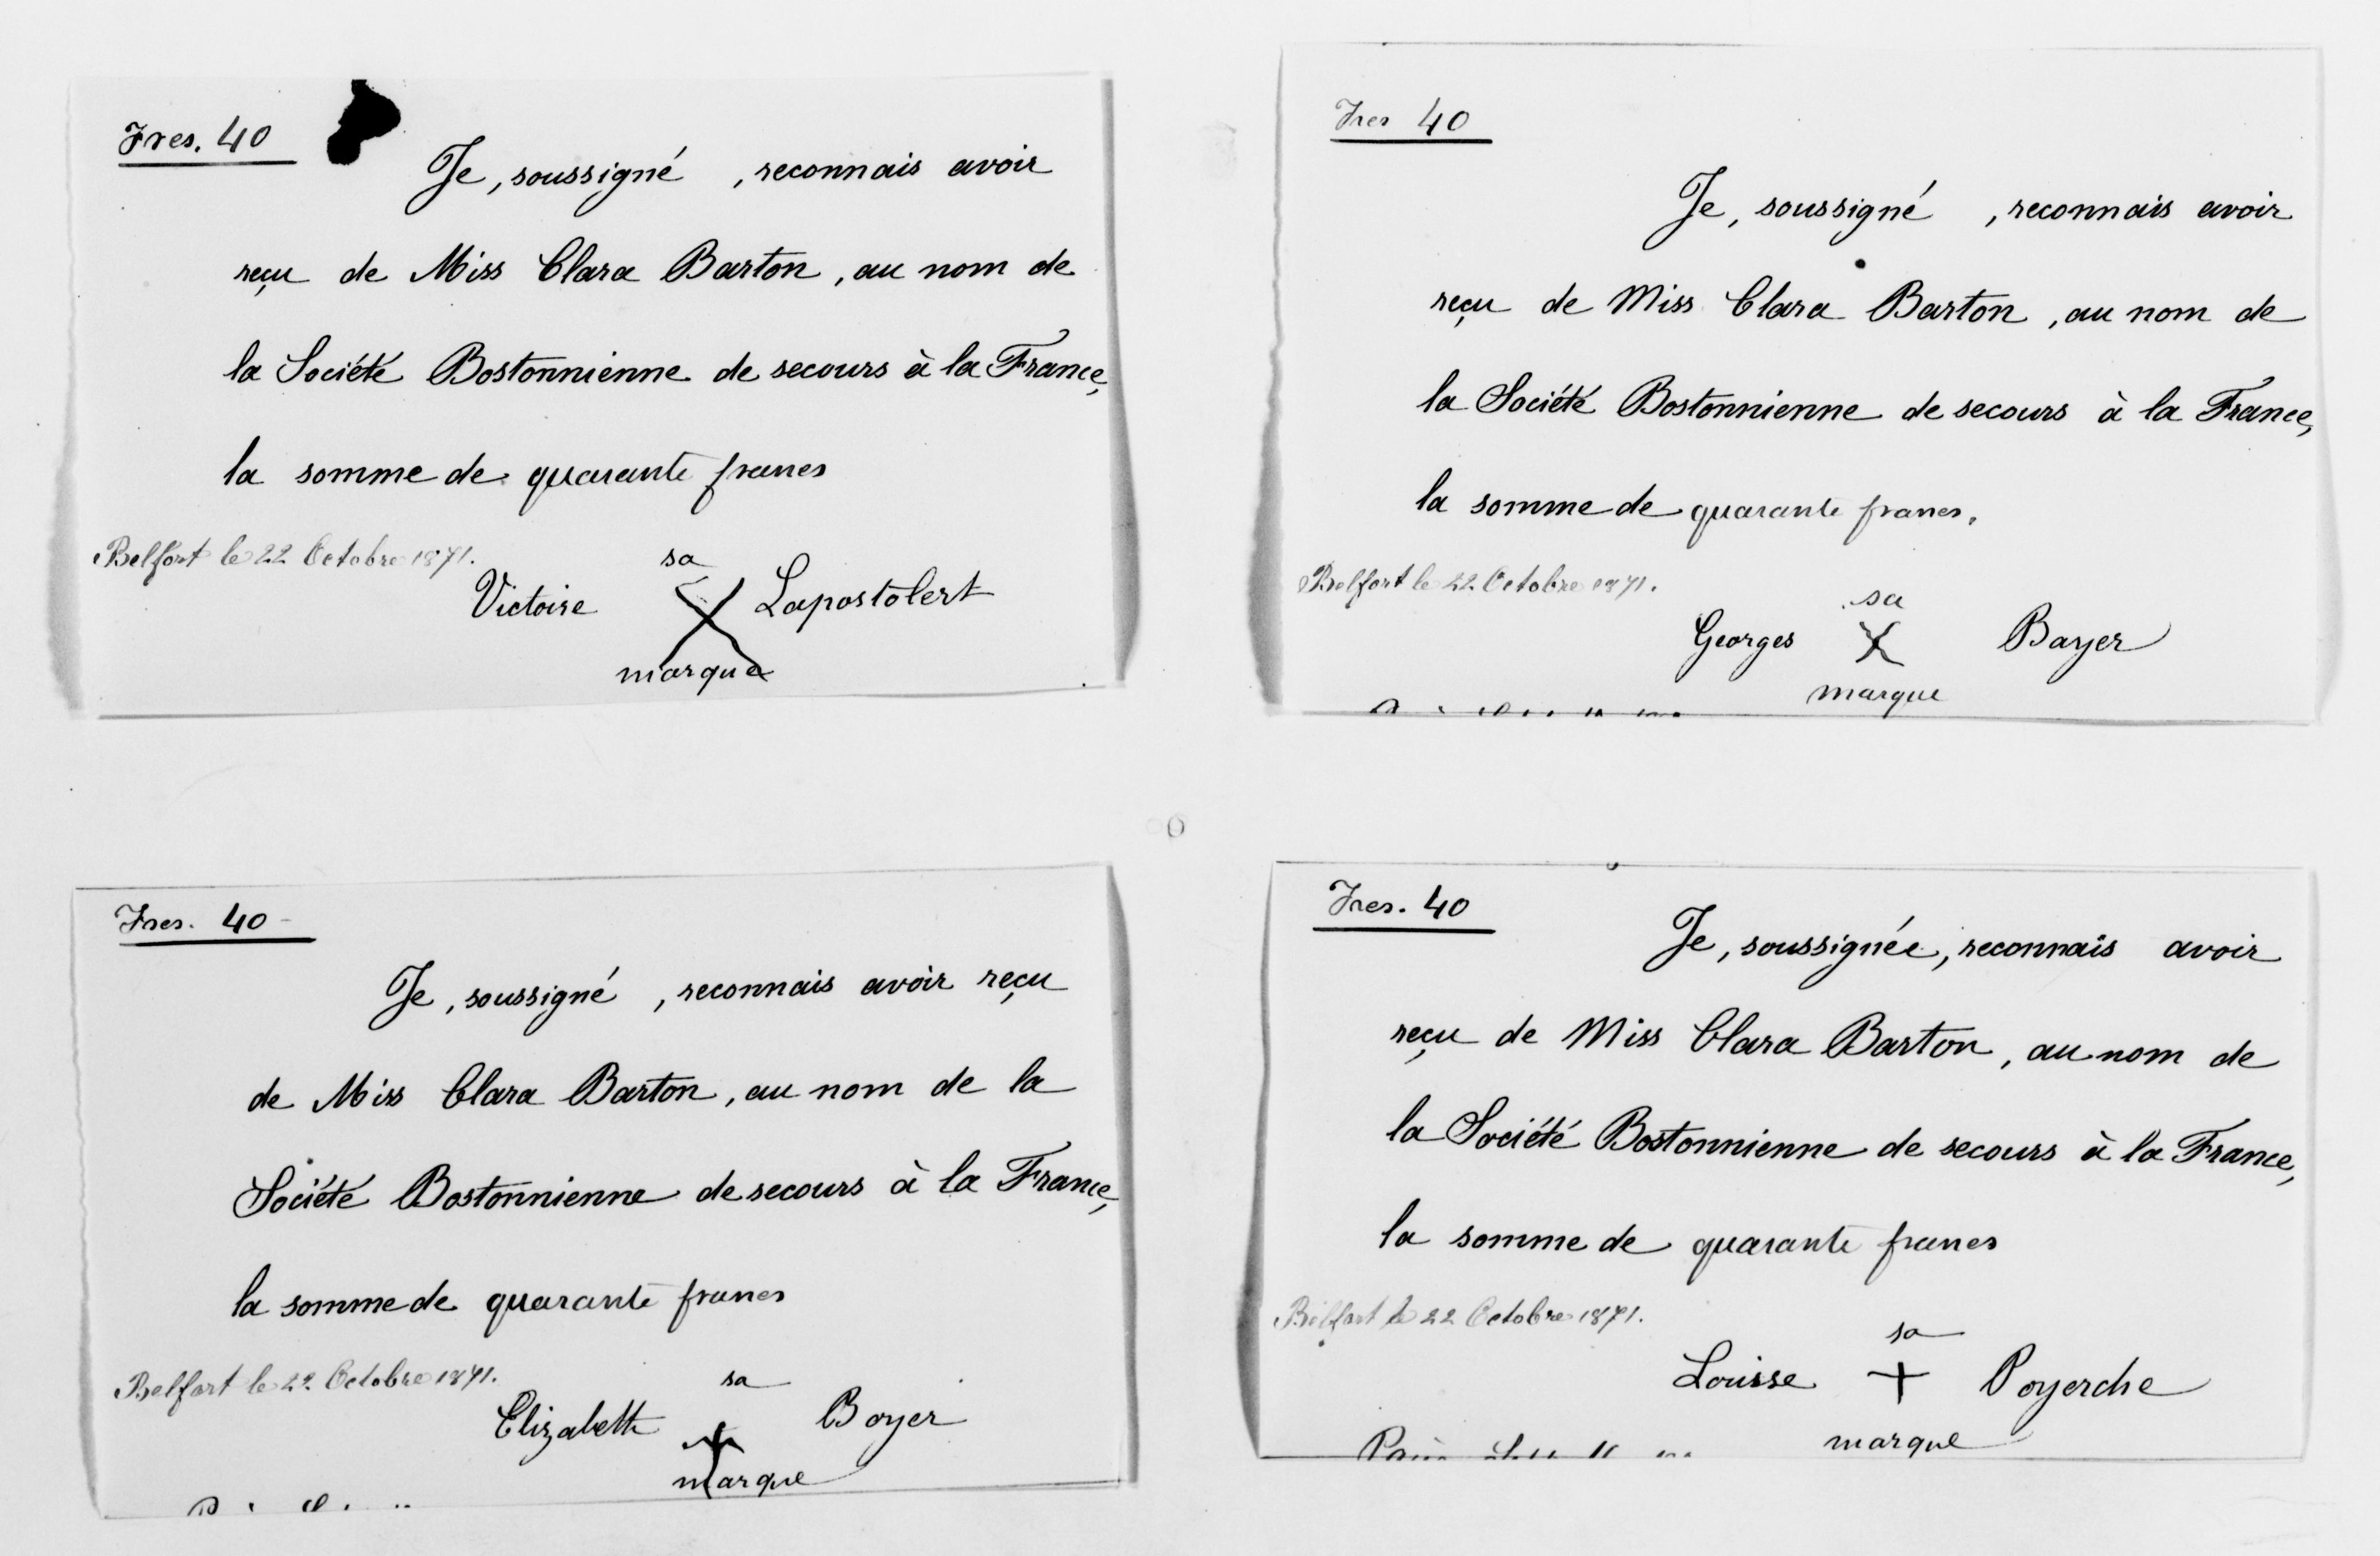 Frcs. 40
Je, soussigné , reconnais avoir
reçu de Miss Clara Barton, au nom de
la Société Bostonnienne de secours à la France,
la somme de quarante francs
Belfort le 22 Octobre 1871.
sa
Victoire X Lapostolert
marque
Frcs 40
Je, soussigné , reconnais avoir
reçu de Miss Clara Barton, au nom de
la Société Bostonnienne de secours à la France,
la somme de quarante francs.
Belfort le 22 Octobre 1871.
sa
Georges X Bayer
marque
Frcs. 40-
Je, soussigné , reconnais avoir reçu
de Miss Clara Barton, au nom de la
Société Bostonnienne de secours à la France,
la somme de quarante francs
Belfort le 22 Octobre 1871.
sa
Elizabeth + Boyer
marque
Frcs. 40
Je, soussignée, reconnais avoir
reçu de Miss Clara Barton, au nom de
la Société Bostonnienne de secours à la France,
la somme de quarante francs
Belfort le 22 Octobre 1871.
sa
Louisse + Poyerche
marque